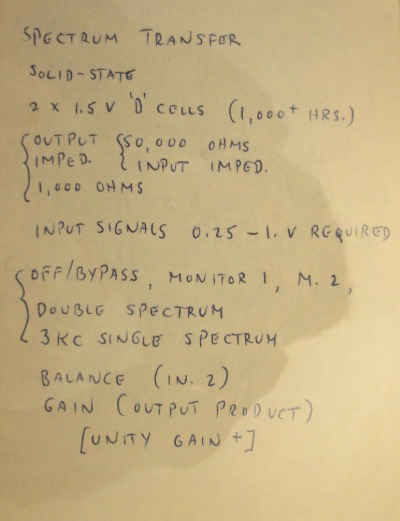 SPECTRUM TRANSFER
SOLID-STATE
2 X 1.5 V 'D' CELLS (1,000+ HRS.)
{OUTPUT {50,000 OHMS
IMPED. INPUT IMPED.
1,000 OHMS
INPUT SIGNALS 0.25 - 1. V REQUIRED
{OFF/BYPASS, MONITOR 1, M. 2,
DOUBLE SPECTRUM
3 KC SINGLE SPECTRUM
BALANCE (IN. 2)
GAIN (OUTPUT PRODUCT)
[UNITY GAIN +]